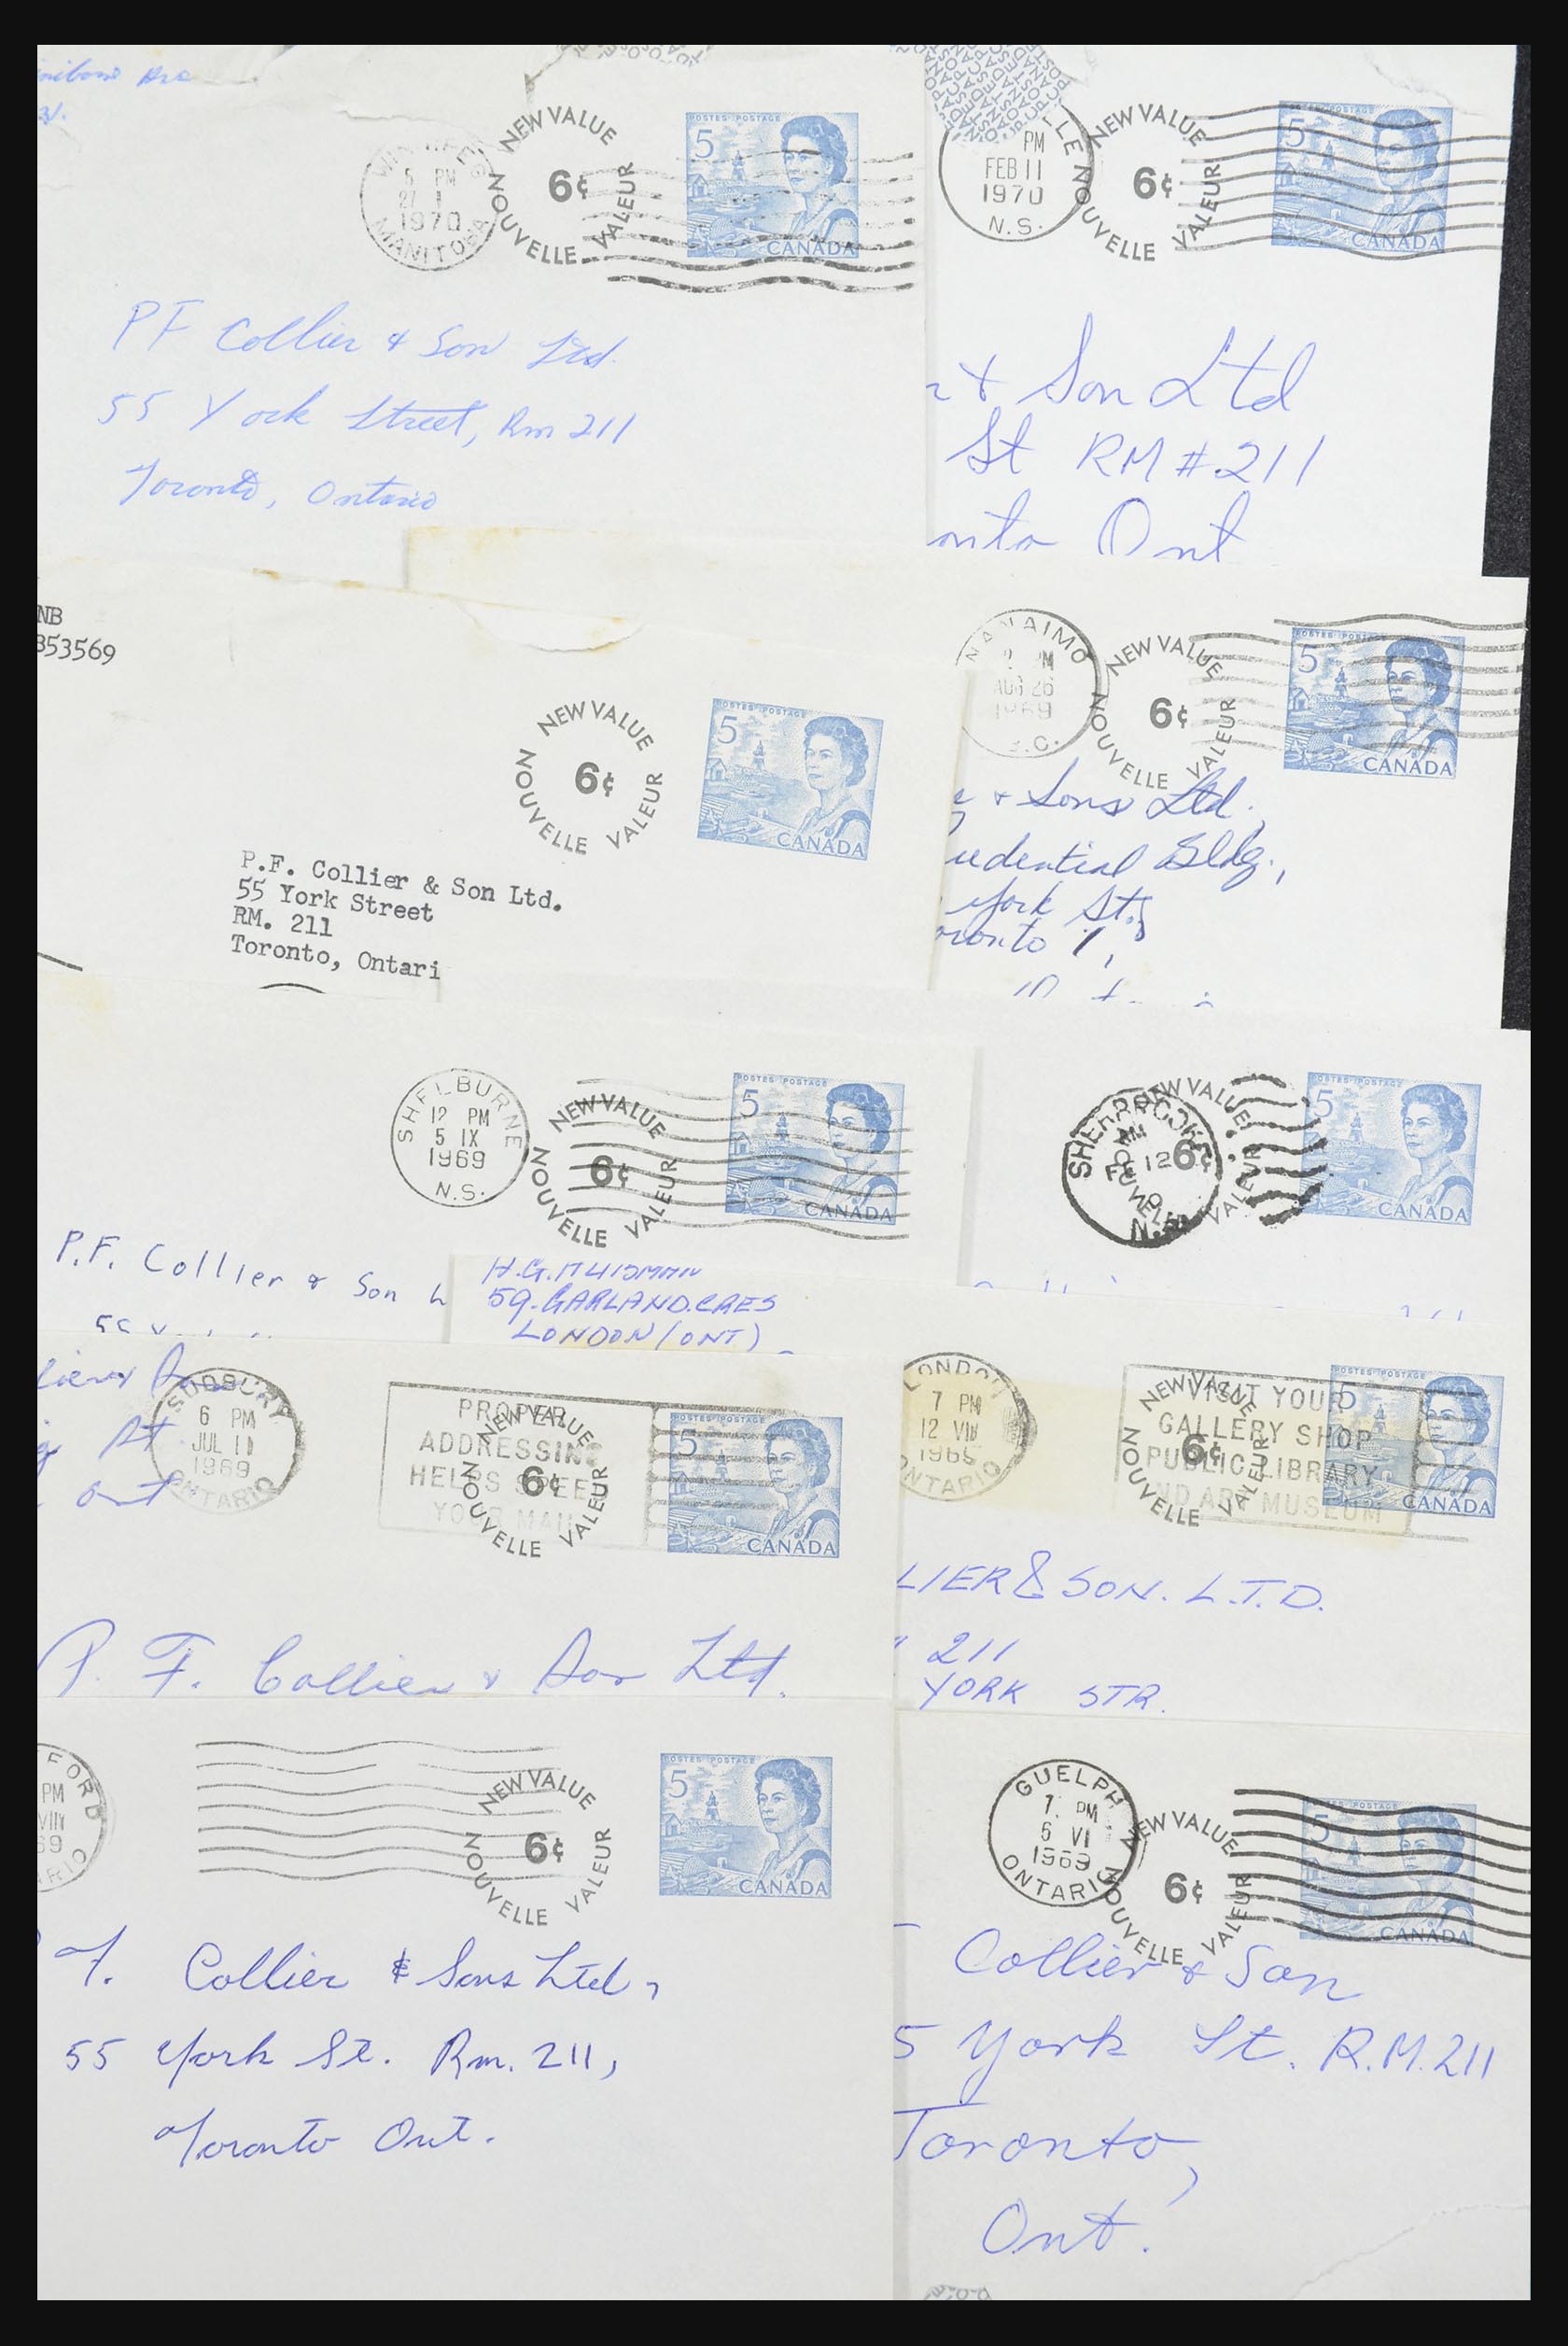 Ave
WINNIPEG
5 PM
1970
MANITOBA
NEW VALUE
6¢
NOUVELLE VALEUR
POSTES POSTAGE
5
CANADA
PF Collier & Son Ltd.
55 York Street, Rm 211
Toronto, Ontario
LLE
PM
FEB 11
1970
N.S.
NEW VALUE
6¢
NOUVELLE VALEUR
POSTES POSTAGE
5
CANADA
r & Son Ltd
St RM # 211
onto Ont
NB
353569
NEW VALUE
6¢
NOUVELLE VALEUR
POSTES POSTAGE
5
CANADA
P.F. Collier & Son Ltd.
55 York Street
RM. 211
Toronto, Ontari
NANAIMO
2 PM
AUG 26
1969
B.C.
NEW VALUE
6¢
NOUVELLE VALEUR
POSTES POSTAGE
5
CANADA
& Sons Ltd.,
udential Bldg.,
York St.,
oronto 1,
SHELBURNE
12 PM
5 IX
1969
N.S.
NEW VALUE
6¢
NOUVELLE VALEUR
POSTES POSTAGE
5
CANADA
P.F. Collier & Son L
NEW VALUE
6¢
NOUVELLE VALEUR
5
CANADA
H.G.
59. GARLAND. CRES
LONDON (ONT)
lier &
St
Ont
SUDBURY
6 PM
JUL 11
1969
ONTARIO
PROPER
ADDRESSING
HELPS SPEED
YOUR MAIL
NEW VALUE
6¢
NOUVELLE VALEUR
5
CANADA
P. F. Collier & Son Ltd.
LONDON
7 PM
12 VIII
1969
ONTARIO
VISIT YOUR
GALLERY SHOP
PUBLIC LIBRARY
AND ART MUSEUM
NEW VALUE
6¢
NOUVELLE VALEUR
POSTES POSTAGE
5
CANADA
LIER & SON. L.T.D.
211
YORK STR.
FORD
PM
VIII
69
ARIO
NEW VALUE
6¢
NOUVELLE VALEUR
POSTES POSTAGE
5
CANADA
F. Collier & Sons Ltd,
55 York St. Rm. 211,
Toronto Ont.
GUELPH
7 PM
6 VI
1969
ONTARIO
NEW VALUE
6¢
NOUVELLE VALEUR
POSTAGE
5
CANADA
Collier & Son
5 York St. R.M. 211
Toronto,
Ont.